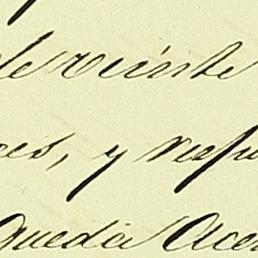 de veinte
es, y resp
Queda Ace